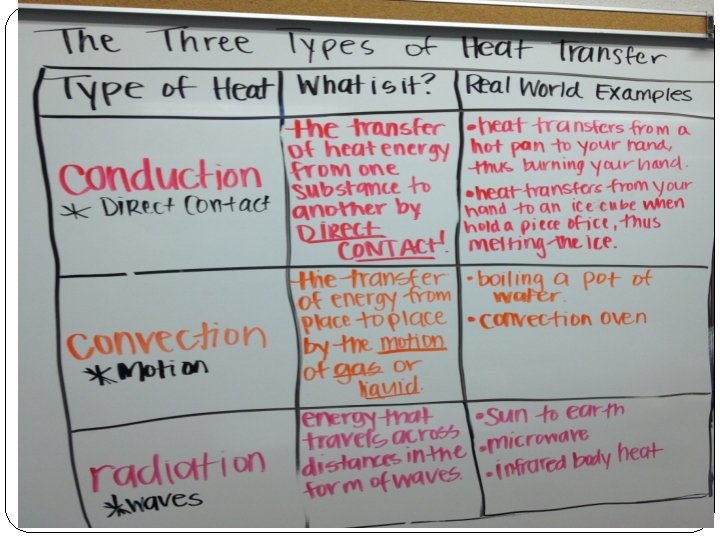 The Three Types of Heat Transfer
Type of Heat
What is it?
Real World Examples
conduction
* Direct Contact
the transfer
of heat energy
from one
substance to
another by
DIRECT
CONTACT!
•heat transfers from a
hot pan to your hand,
thus burning your hand.
•heat transfers from your
hand to an ice cube when
hold a piece of ice, thus
melting the Ice.
convection
*Motion
the transfer
of energy from
place to place
by the motion
of gas or
liquid.
•boiling a pot of
water.
•convection oven
radiation
*waves
energy that
travels across
distances in the
form of waves.
•Sun to earth
•microwave
•infrared body heat